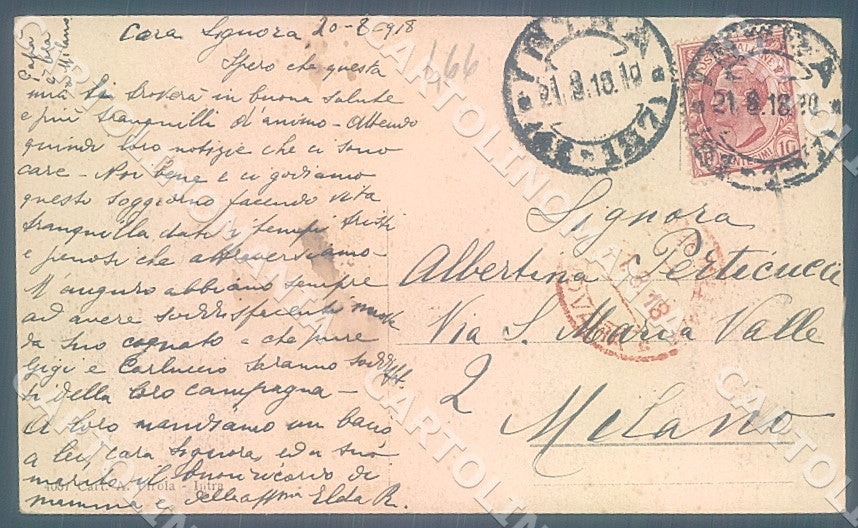 20-8-918
Cara Signora,
Spero che questa
mia La troverà in buona salute
e più tranquilli d'animo - Attendo
quindi loro notizie che ci sono
care - Noi bene e ci godiamo
questo soggiorno facendo vita
tranquilla dati i tempi tristi
e penosi che attraversiamo
M'auguro abbiano sempre
ad avere soddisfacenti nuove
da suo cognato e che pure
Gigi e Carluccio saranno soddisfat
ti della loro campagna -
A loro mandiamo un bacio
a lei, cara Signora ed a suo
marito il buon ricordo di
mamma e dell'aff.ma Elda R.
4087 Cart. A. Virola - Intra
Milano
166
INTRA
21.8.18.10
INTRA
21.8.18.20
POSTE ITALIANE
10
10
Signora
Albertina Perticucci
Via S. Maria Valle
2
Milano
18
NOVARA
CARTOLINOMANIA